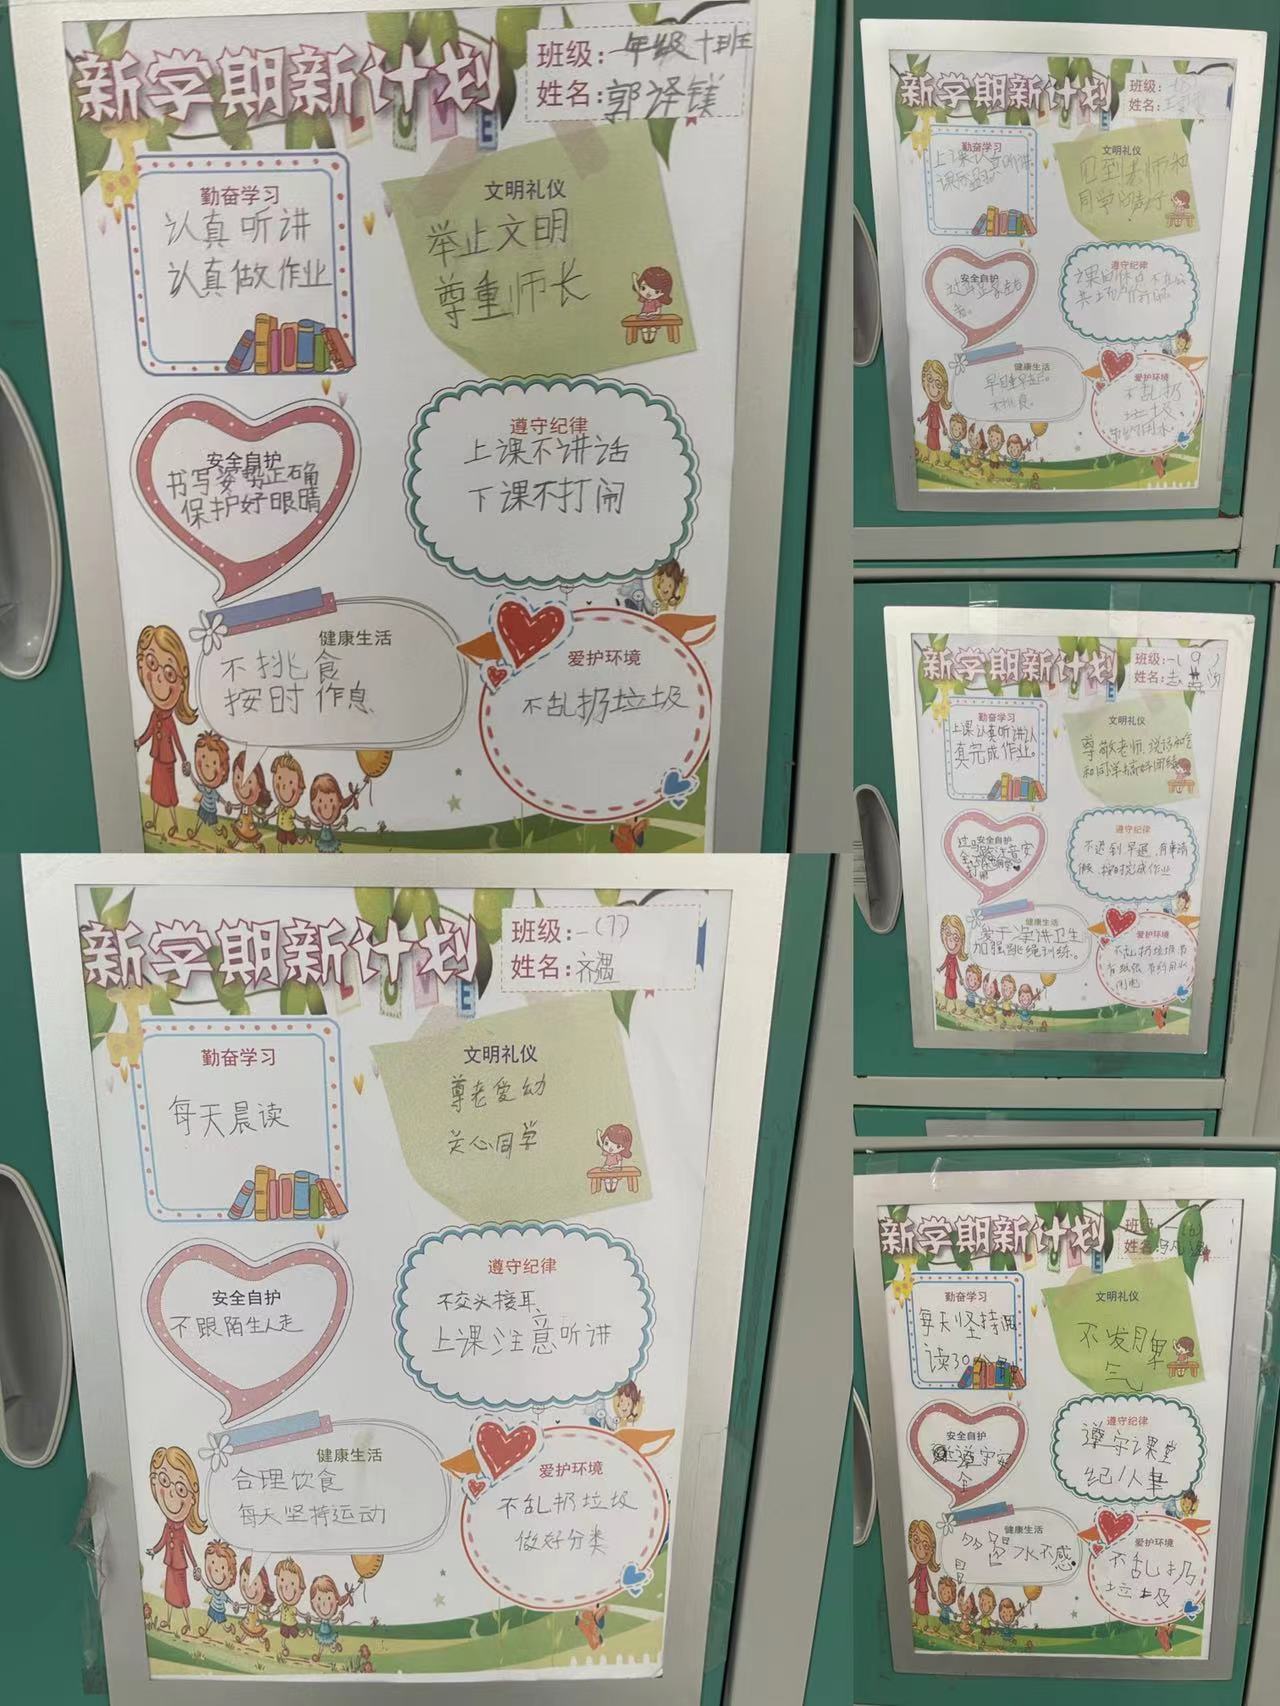 新学期新计划
班级:一年级十班
姓名:郭泽镁
LOVE
勤奋学习
认真听讲
认真做作业
文明礼仪
举止文明
尊重师长
安全自护
书写姿势正确
保护好眼睛
遵守纪律
上课不讲话
下课不打闹
健康生活
不挑食
按时作息
爱护环境
不乱扔垃圾
新学期新计划
班级:一(7)
姓名:齐遇
LOVE
勤奋学习
每天晨读
文明礼仪
尊老爱幼
关心同学
安全自护
不跟陌生人走
遵守纪律
不交头接耳
上课注意听讲
健康生活
合理饮食
每天坚持运动
爱护环境
不乱扔垃圾
做好分类
新学期新计划
班级:
姓名:
勤奋学习
上课认真听讲
文明礼仪
见到老师和
同学问好
安全自护
遵守纪律
健康生活
早睡早起。
不挑食。
爱护环境
不乱扔
垃圾、
节约用水
新学期新计划
班级:一(9)
姓名:
勤奋学习
上课认真听讲认
真完成作业。
文明礼仪
尊敬老师,说话和气
和同学搞好团结
安全自护
遵守纪律
不迟到早退,有事请
假,按时完成作业
健康生活
爱干净讲卫生
加强跳绳训练。
爱护环境
不乱扔垃圾节
省纸张 节约用水
用电
新学期新计划
班级 (6)
姓名:
勤奋学习
每天坚持阅
读30分钟
文明礼仪
不发脾
气
安全自护
遵守安
全
遵守纪律
遵守课堂
纪律
健康生活
多喝水不感
冒
爱护环境
不乱扔
垃圾